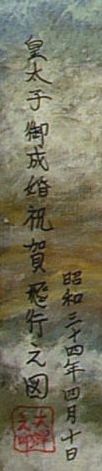 皇太子御成婚祝賀飛行之図
昭和三十四年四月十日